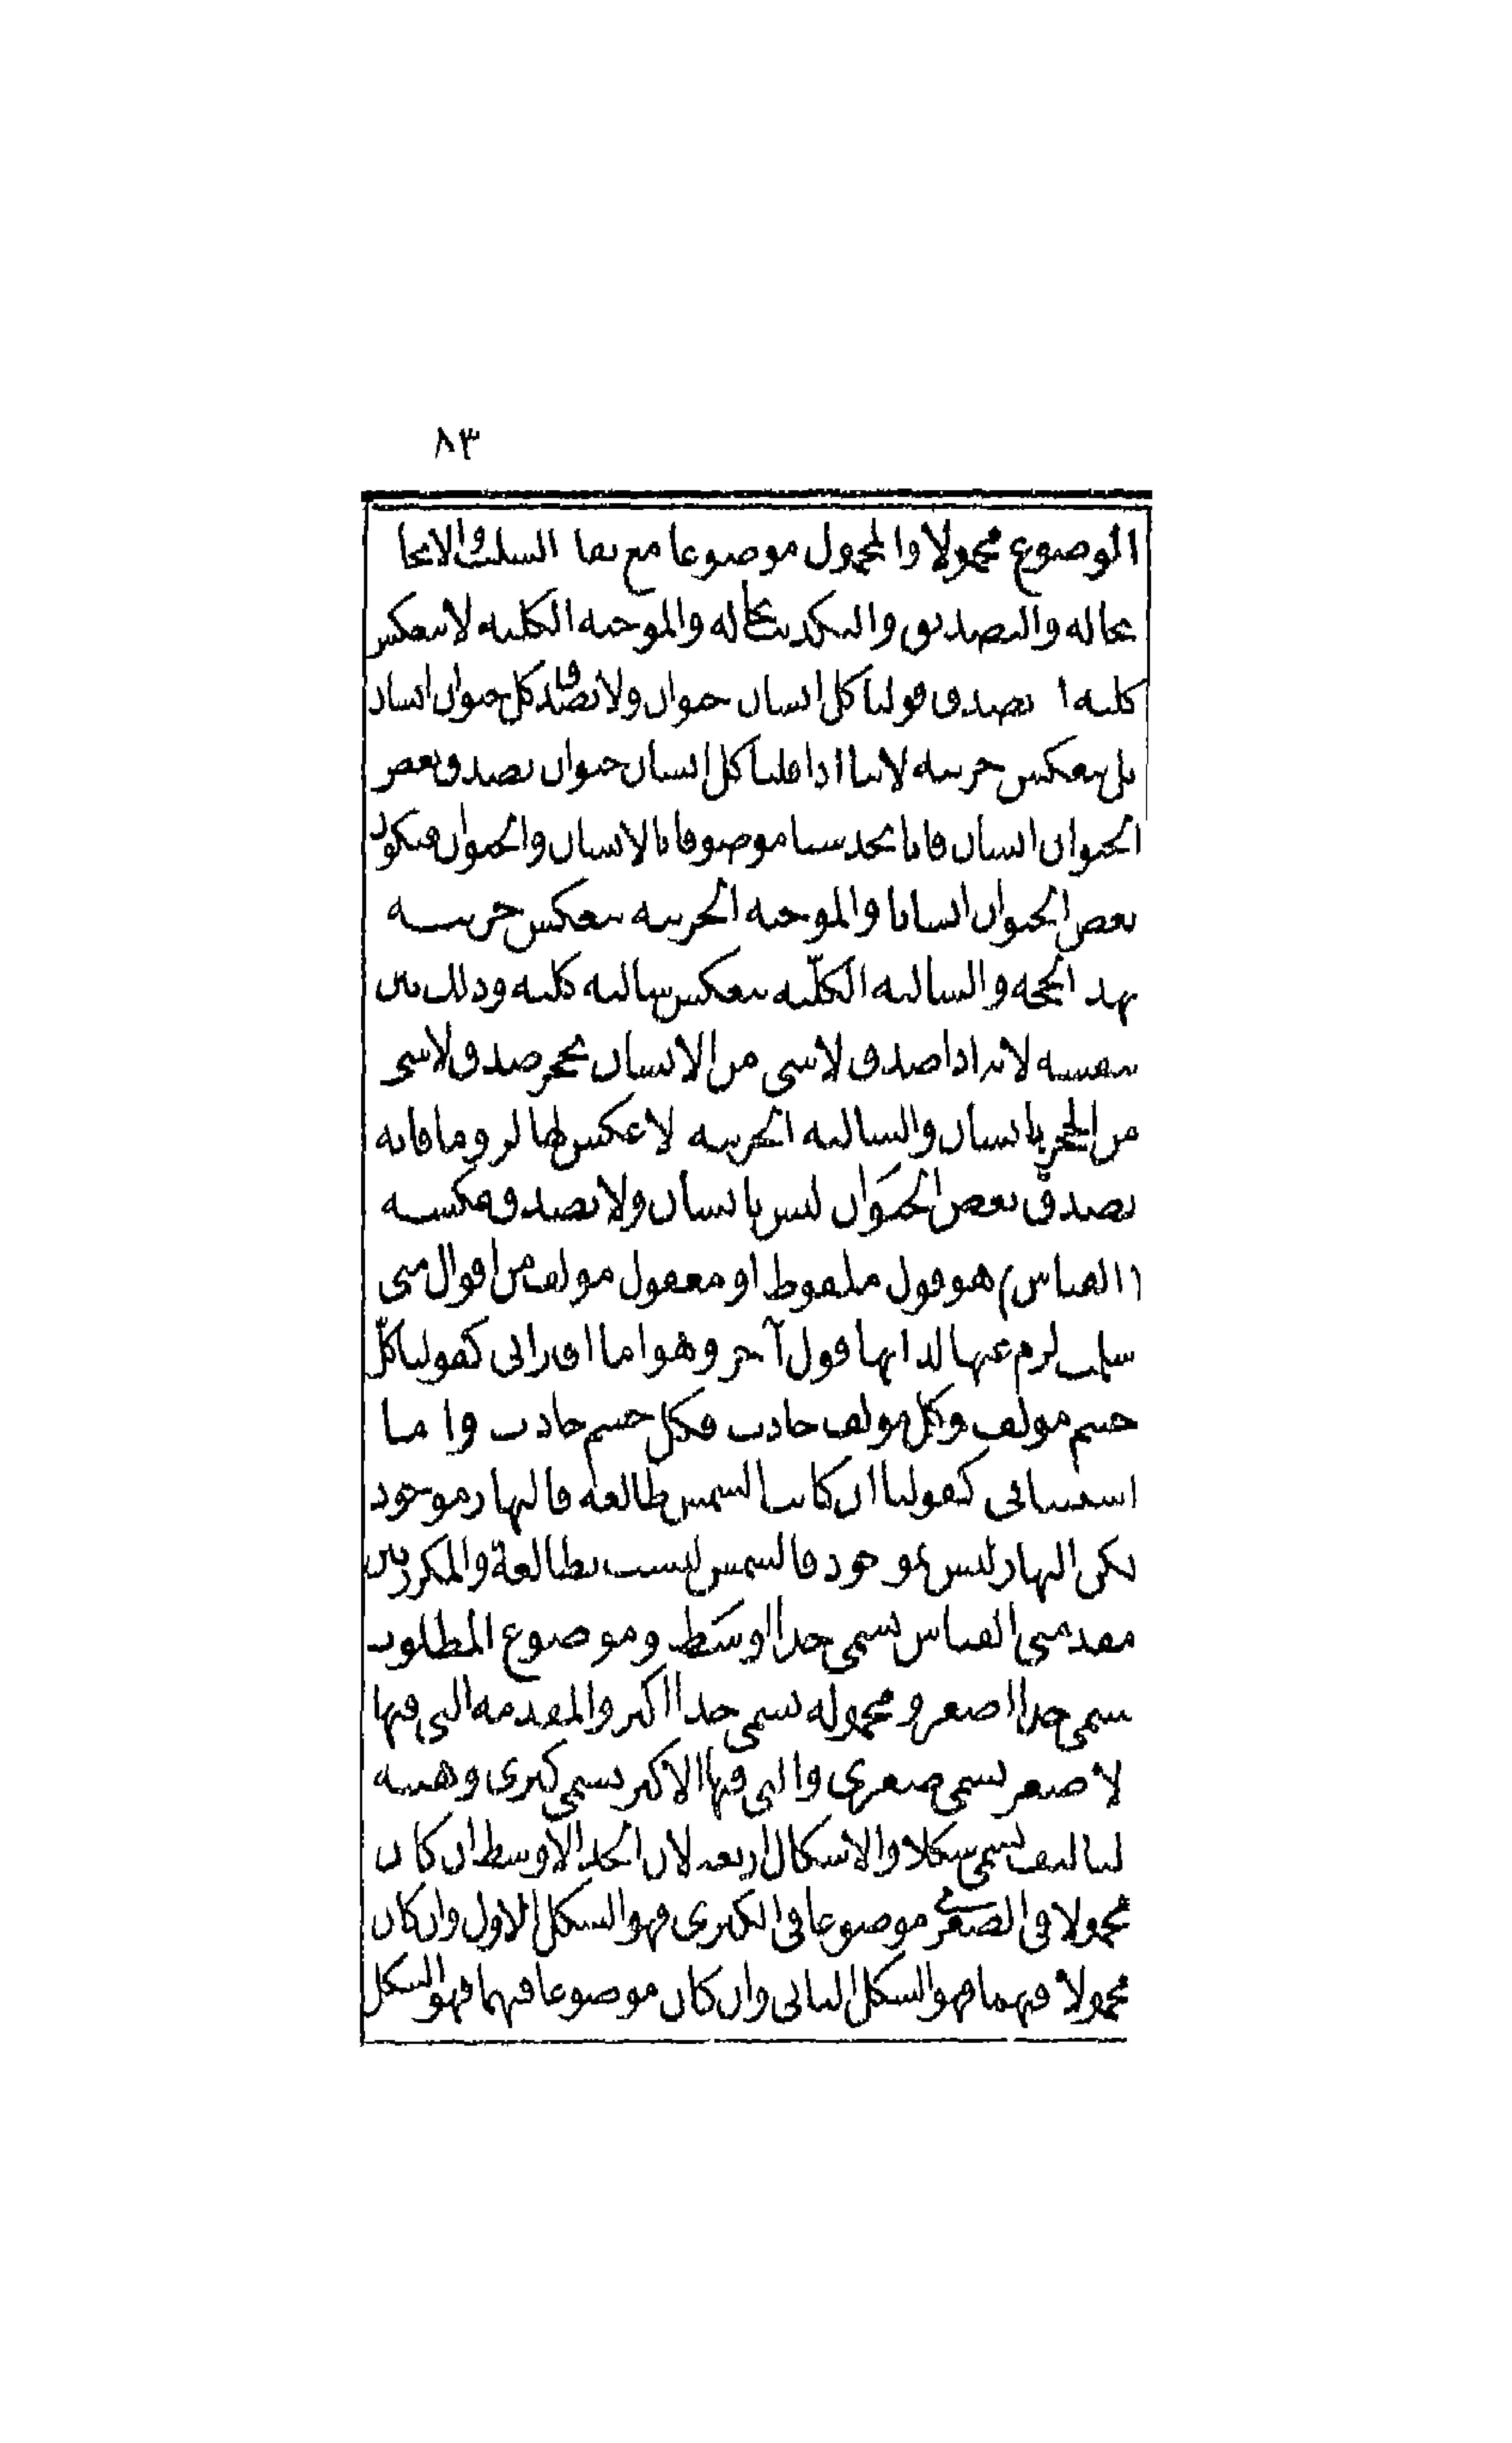 ٨٣
الموضوع محمولا والمحمول موضوعا مع بقاء السلب والايجا
بحاله والتصديق والتكذيب بحاله والموجبه الكليه لا تنعكس
كليه ا يصدق قولنا كل انسان حيوان ولا يصدق كل حيوان انسان
بل تنعكس جزئيه لاننا اذا قلنا كل انسان حيوان يصدق بعض
الحيوان انسان فانا نجد شيئا موصوفا بالانسان والحيوان فيكون
بعض الحيوان انسانا والموجبه الجزئيه تنعكس جزئيه
بهذ الحجه والسالبه الكلّيه تنعكس سالبه كليه وذلك بين
بنفسه لانه اذا صدق لا شى من الانسان بحجر صدق لا شى
من الحجر بانسان والسالبه الجزئيه لا عكس لها لزوما فانه
يصدق بعض الحيوان ليس بانسان ولا يصدق عكسه
(القياس) هو قول ملفوظ او معقول مولف من اقوال متى
سلمت لزم عنها لذاتها قول آخر وهو اما اقترانى كقولنا كلّ
جسم مولف وكل مولف حادث فكل جسم حادث واما
استثنائى كقولنا ان كانت الشمس طالعه فالنهار موجود
لكن النهار ليس بموجود فالشمس ليست بطالعة والمكرر بين
مقدمتى القياس يسمى حدا اوسط وموضوع المطلوب
يسمى حدا اصغر ومحموله يسمى حدا اكبر والمقدمه التى فيها
لا صغر يسمى صغرى والتى فيها الاكبر يسمى كبرى وهيئه
لتاليف يسمى شكلا والاشكال اربعه لان الحد الاوسط ان كان
محمولا فى الصغرى موضوعا فى الكبرى فهو الشكل الاول وان كان
محمولا فيهما فهو الشكل الثانى وان كان موضوعا فيهما فهو الشكل